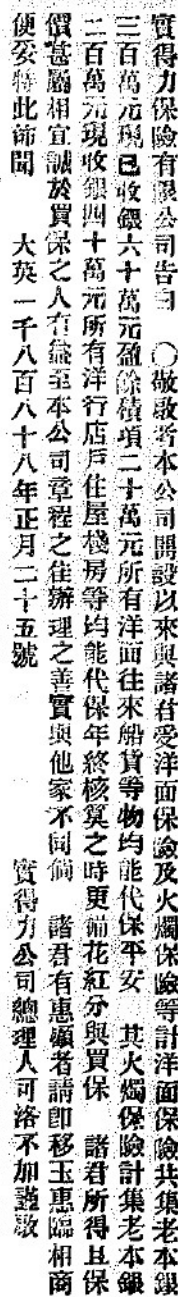 實得力保險有限公司告白　〇敬啟者本公司開設以來與諸君受洋面保險及火燭保險等計洋面保險共集老本銀
三百萬元現已收銀六十萬元盈餘積項二十萬元所有洋面往來船貨等物均能代保平安　其火燭保險計集老本銀
二百萬元現收銀四十萬元所有洋行店戶住屋棧房等均能代保年終核算之時更備花紅分與買保　諸君所得且保
價甚屬相宜誠於買保之人有益至本公司章程之佳辦理之善實與他家不同倘　諸君有惠顧者請即移玉惠臨相商
便妥特此佈聞　大英一千八百八十八年正月二十五號　實得力公司總理人可洛不加謹啟